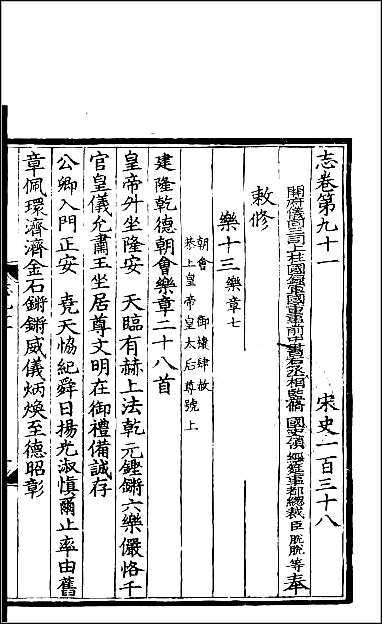 志卷第九十一 宋史一百三十八
開府儀同三司上柱國錄軍國重事前中書右丞相監修 國史領 經筵事都總裁臣脫脫等奉
敕修
樂十三 樂章七
朝會 御樓肆赦
恭上皇帝皇太后尊號上
建隆乾德朝會樂章二十八首
皇帝升坐隆安 天臨有赫上法乾元鏗鏘六樂儼恪千
官皇儀允肅玉坐居尊文明在御禮備誠存
公卿入門正安 堯天協紀舜日揚光淑慎爾止率由舊
章佩環濟濟金石鏘鏘威儀炳煥至德昭彰